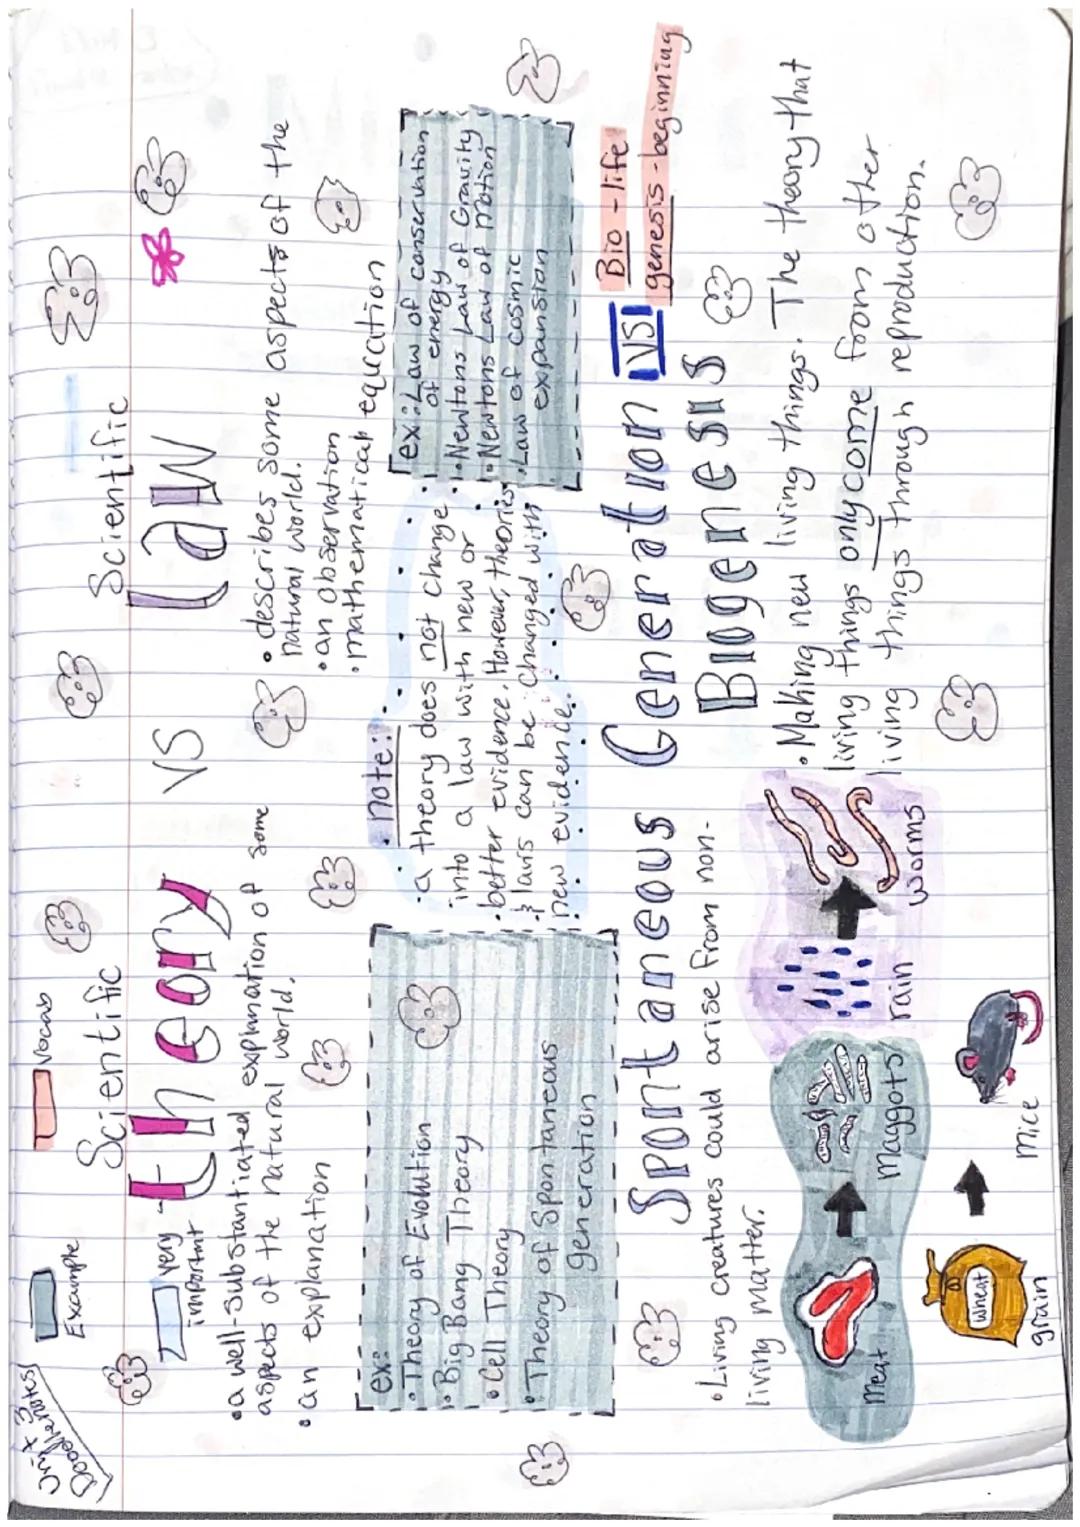 Unit 3
Doodlenotes
Example
Vocab
very
important
Scientific
theory
vs
Scientific
law
• a well-substantiated explanation of some
aspects of the natural world.
• an explanation
• describes some aspects of the
natural world.
• an observation
• mathematical equation
ex:
• Theory of Evolution
• Big Bang Theory
• Cell Theory
• Theory of Spontaneous
generation
note:
• a theory does not change
into a law with new or
better evidence. However, theories
& laws can be changed with
new evidence.
ex: Law of conservation
of energy
• Newtons Law of Gravity
• Newtons Law of Motion
• Law of cosmic
expansion
Spontaneous Generation VS
Biogenesis
Bio - life
genesis - beginning
• Living creatures could arise from non-
living matter.
meat
maggots
rain
worms
wheat
grain
mice
• Making new living things. The theory that
living things only come from other
living things through reproduction.